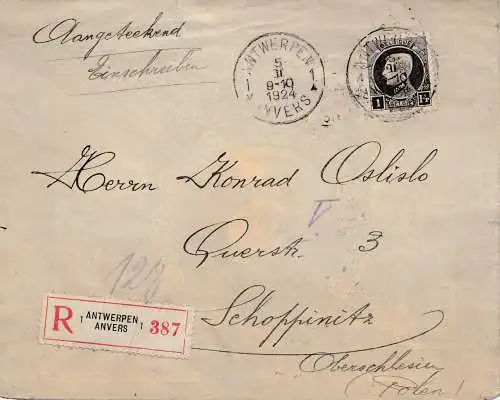 Aangeteekend
Einschreiben
ANTWERPEN
5
II
9-10
1924
1 1
ANVERS
ANTWERPEN
1 Fr
BELGIE
Herrn Konrad Oslislo
Querstr. 3
V
Schoppinitz
Oberschlesien
(Polen!
R
1 ANTWERPEN 1
ANVERS
387